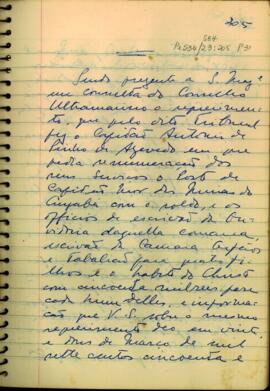 205
564
P 31
Sendo presente a S. Mag.e
em consulta do Conselho
Ultramarino o requerimen-
to, que pelo dito Tribunal
fez o Capitão Antonio de
Pinho de Azevedo em que
pedia remuneração dos
seus serviços o Posto de
Capitão Mor das Minas do
Cuyabá com o soldo, e os
officios de escrivão da Ou-
vidoria daquella comarca,
escrivão da Camara Orfãos
e Tabaliães para quatro fi-
lhos e o habito de Christo
com cincoenta mil reis para
cada hum delles, e informa-
ção que V. S. sobre o mesmo
requerimento deo em vinte
e dous de Março de mil
sette centos cincoenta e